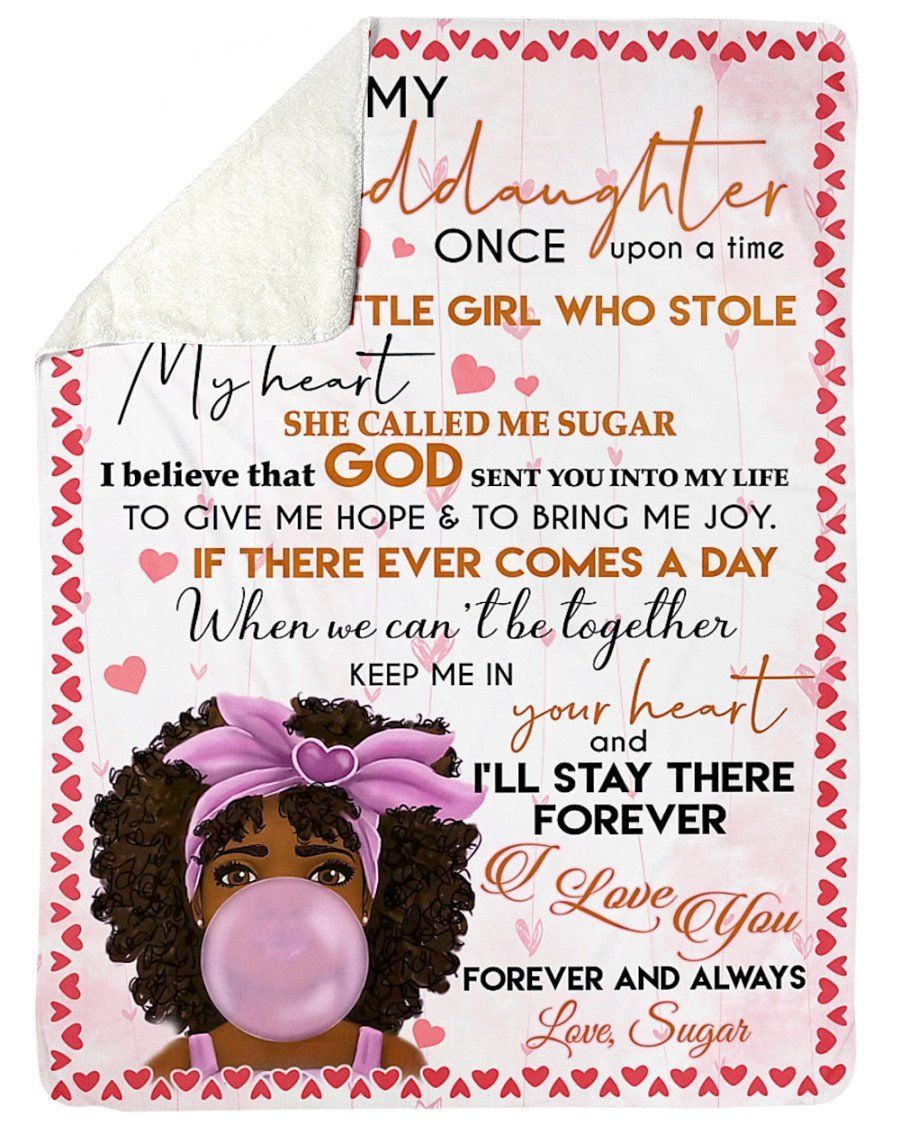 MY
ddaughter
ONCE upon a time
TTLE GIRL WHO STOLE
My heart
SHE CALLED ME SUGAR
I believe that GOD SENT YOU INTO MY LIFE
TO GIVE ME HOPE & TO BRING ME JOY.
IF THERE EVER COMES A DAY
When we can't be together
KEEP ME IN
your heart
and
I'LL STAY THERE
FOREVER
I Love You
FOREVER AND ALWAYS
Love, Sugar